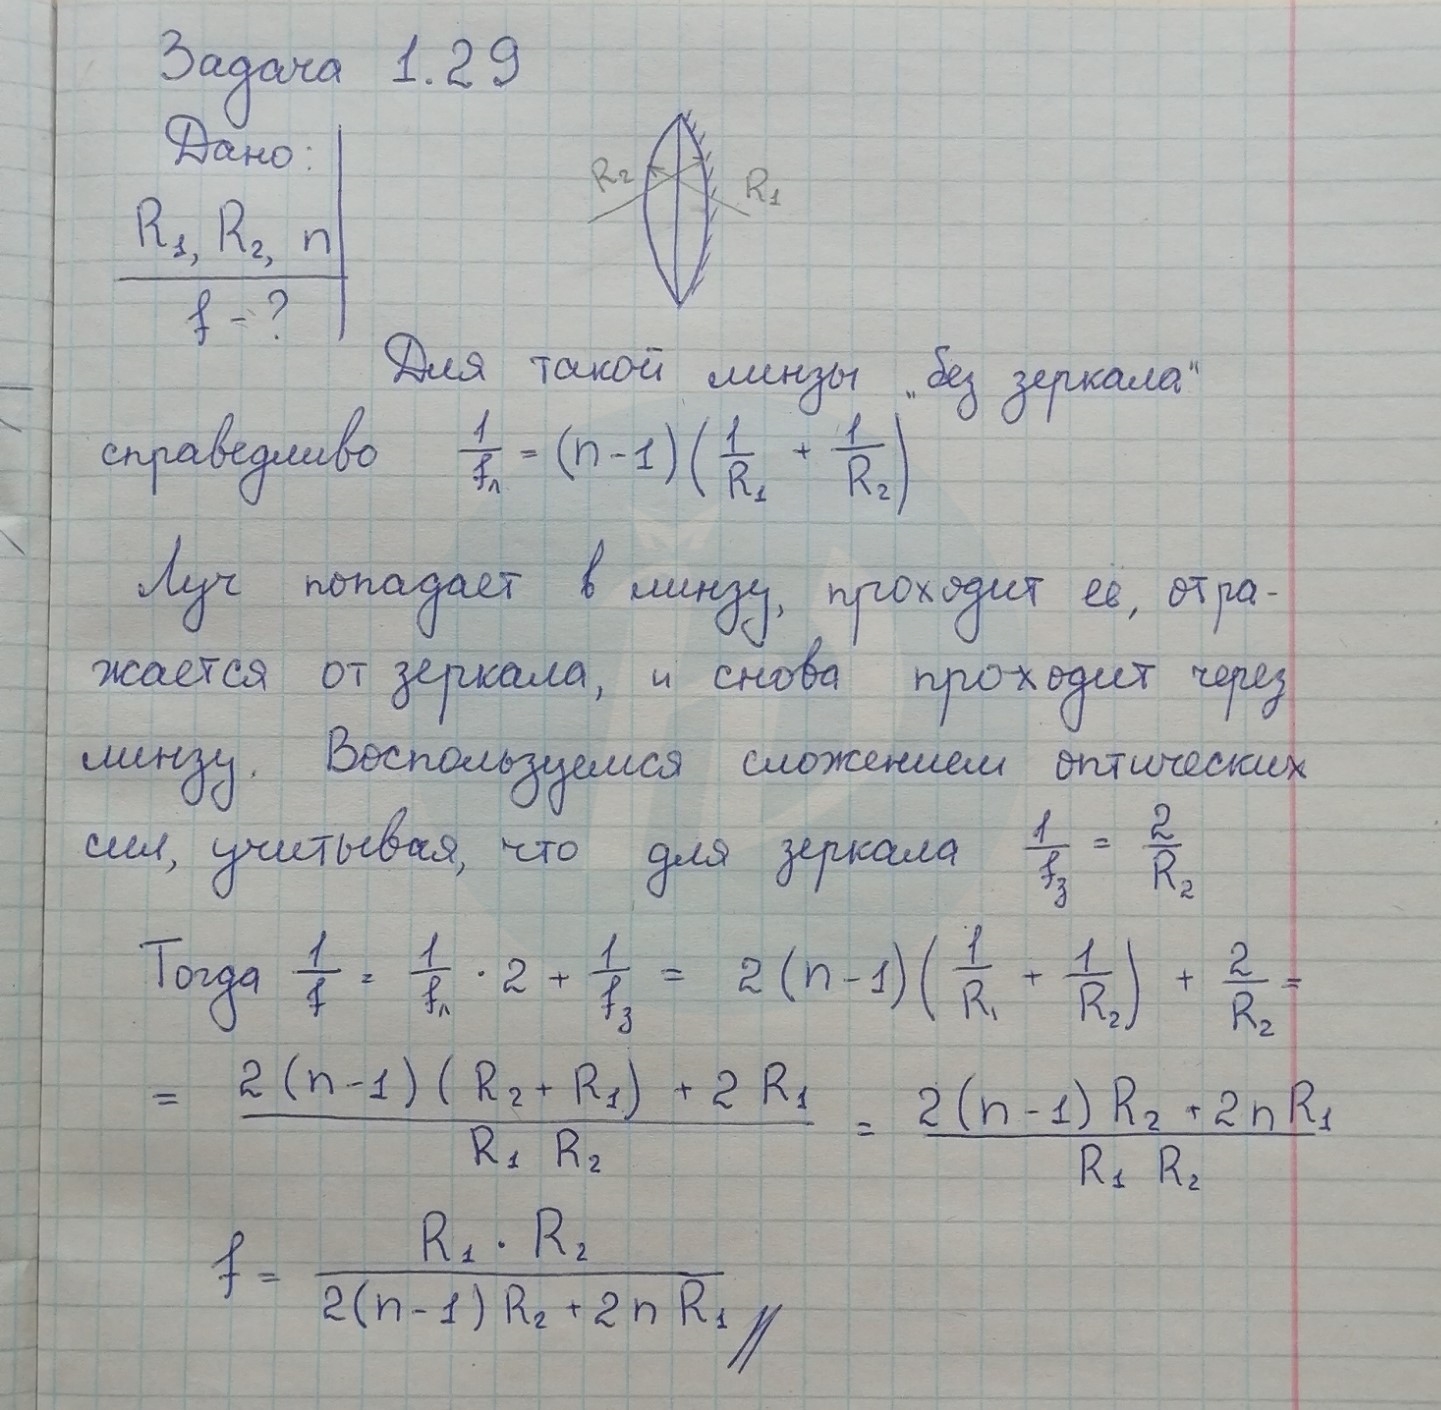 Задача 1.29
Дано:
R₁, R₂, n
f - ?
R₂ R₁
Для такой линзы „без зеркала"
справедливо 1/fл = (n-1)(1/R₁ + 1/R₂)
Луч попадает в линзу, проходит её, отра-
жается от зеркала, и снова проходит через
линзу. Воспользуемся сложением оптических
сил, учитывая, что для зеркала 1/fз = 2/R₂
Тогда 1/f = 1/fл · 2 + 1/fз = 2(n-1)(1/R₁ + 1/R₂) + 2/R₂ =
= (2(n-1)(R₂+R₁) + 2R₁)/(R₁ R₂) = (2(n-1)R₂ + 2nR₁)/(R₁ R₂)
f = (R₁ · R₂)/(2(n-1)R₂ + 2nR₁) //